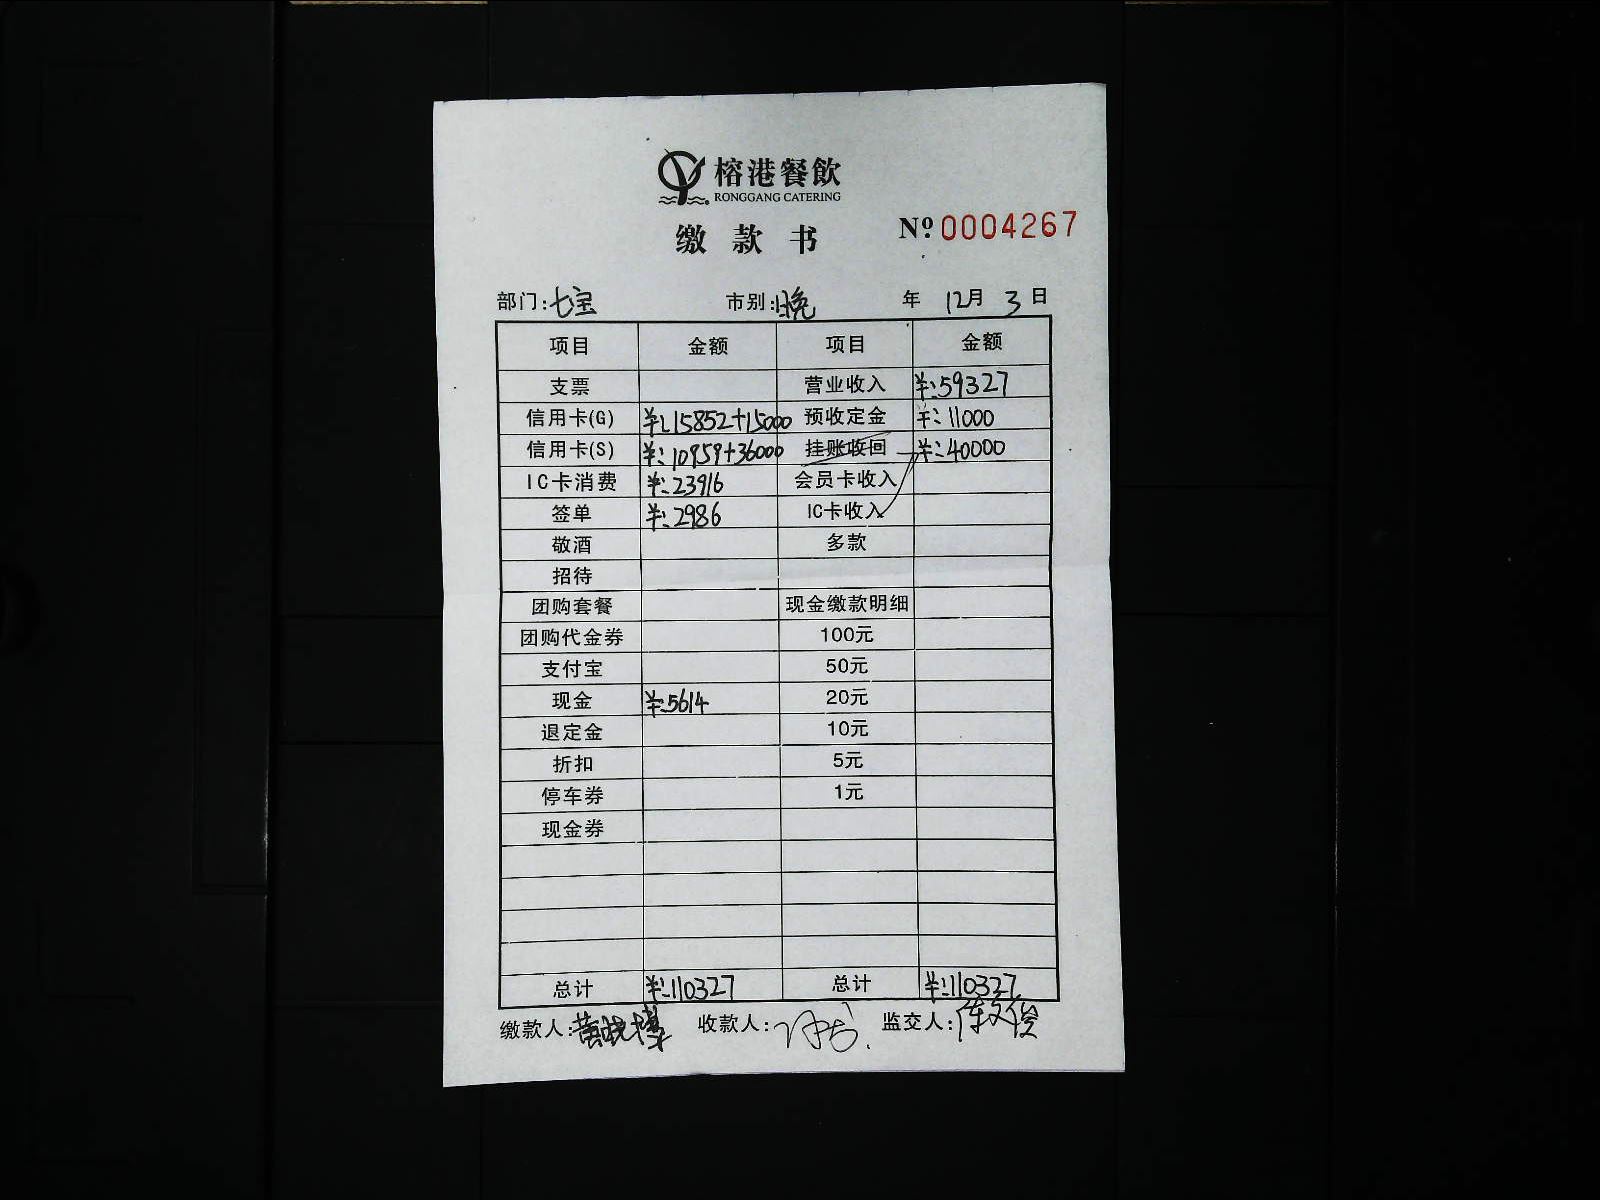 榕港餐飲
RONGGANG CATERING
缴款书 Nº 0004267
部门:七宝 市别:晚 年 12月 3日
项目 金额 项目 金额
支票 营业收入 ¥:59327
信用卡(G) ¥:15852+15000 预收定金 ¥:11000
信用卡(S) ¥:10959+36000 挂账收回 ¥:40000
IC卡消费 ¥:23916 会员卡收入
签单 ¥:2986 IC卡收入
敬酒 多款
招待
团购套餐 现金缴款明细
团购代金券 100元
支付宝 50元
现金 ¥:5614 20元
退定金 10元
折扣 5元
停车券 1元
现金券
总计 ¥:110327 总计 ¥:110327
缴款人: 收款人: 监交人: